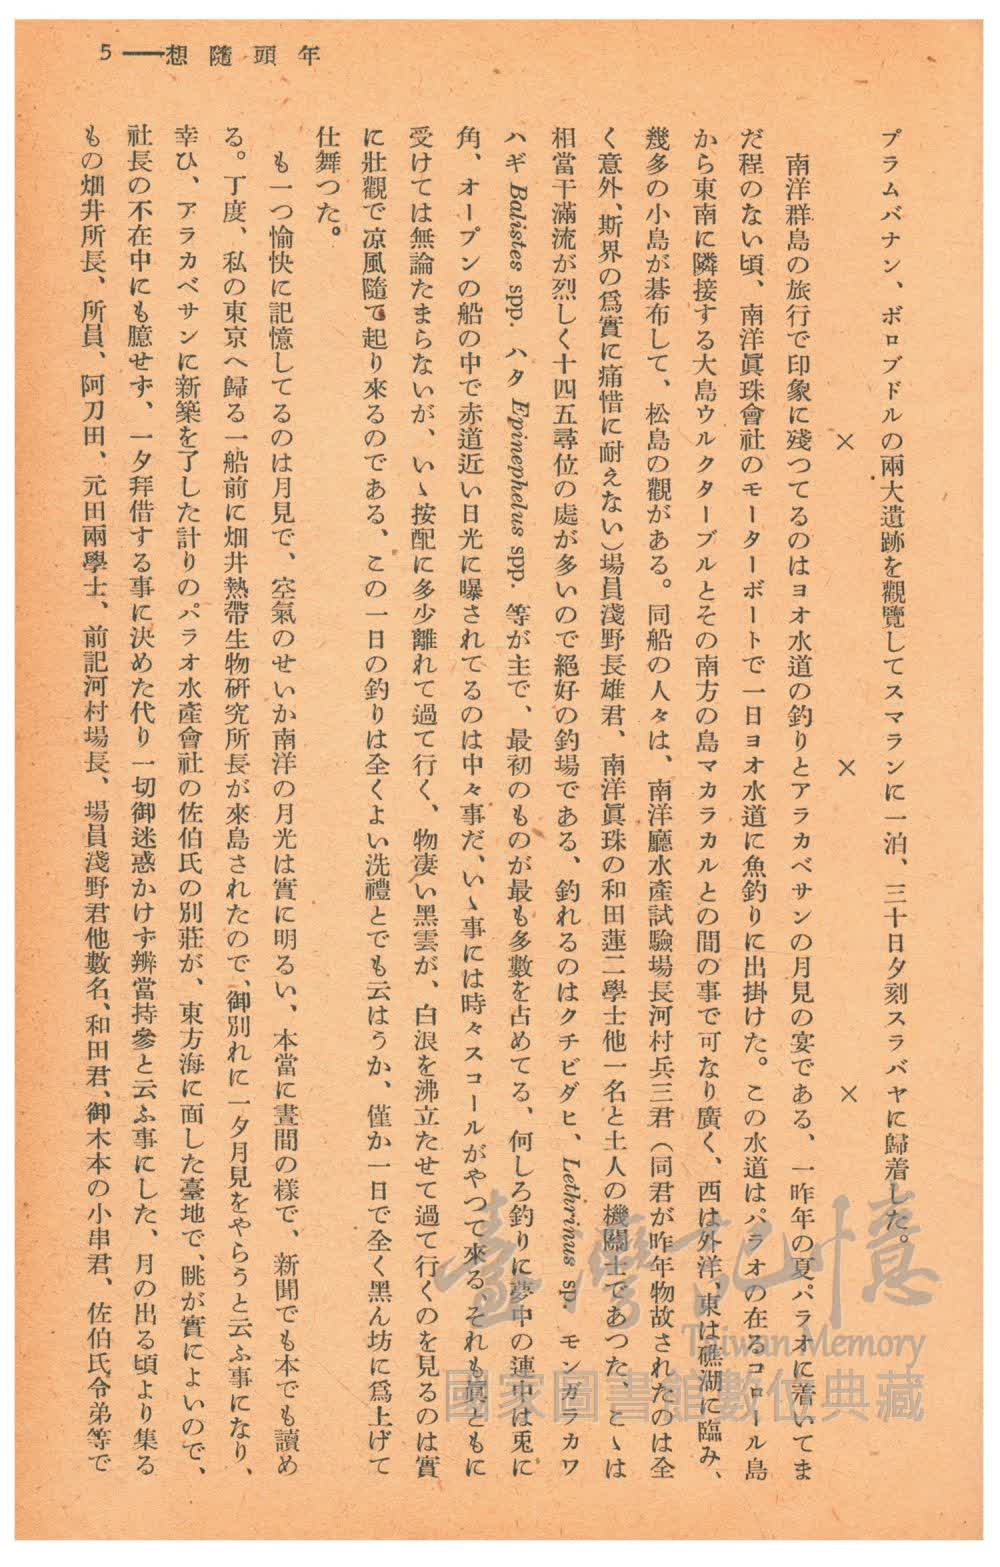 年頭隨想——5
プラムバナン、ボロブドルの兩大遺跡を觀覽してスマランに一泊、三十日夕刻スラバヤに歸着した。
×　×　×
南洋群島の旅行で印象に殘つてるのはヨオ水道の釣りとアラカベサンの月見の宴である、一昨年の夏パラオに着いてま
だ程のない頃、南洋眞珠會社のモーターボートで一日ヨオ水道に魚釣りに出掛けた。この水道はパラオの在るコロール島
から東南に隣接する大島ウルクターブルとその南方の島マカラカルとの間の事で可なり廣く、西は外洋、東は礁湖に臨み、
幾多の小島が碁布して、松島の觀がある。同船の人々は、南洋廳水產試驗場長河村兵三君（同君が昨年物故されたのは全
く意外、斯界の爲實に痛惜に耐えない）場員淺野長雄君、南洋眞珠の和田蓮二學士他一名と土人の機關士であつた、こゝは
相當干滿流が烈しく十四五尋位の處が多いので絕好の釣場である、釣れるのはクチビダヒ、Lethrinus sp. モンガラカワ
ハギ Balistes spp. ハタ Epinephelus spp. 等が主で、最初のものが最も多數を占めてる、何しろ釣りに夢中の連中は兎に
角、オープンの船の中で赤道近い日光に曝されてるのは中々事だ、いゝ事には時々スコールがやつて來る、それも眞ともに
受けては無論たまらないが、いゝ按配に多少離れて過て行く、物凄い黑雲が、白浪を沸立たせて過て行くのを見るのは實
に壯觀で凉風隨て起り來るのである、この一日の釣りは全くよい洗禮とでも云はうか、僅か一日で全く黑ん坊に爲上げて
仕舞つた。
も一つ愉快に記憶してるのは月見で、空氣のせいか南洋の月光は實に明るい、本當に晝間の樣で、新聞でも本でも讀め
る。丁度、私の東京へ歸る一船前に畑井熱帶生物硏究所長が來島されたので、御別れに一夕月見をやらうと云ふ事になり、
幸ひ、アラカベサンに新築を了した計りのパラオ水產會社の佐伯氏の別莊が、東方海に面した臺地で、眺が實によいので、
社長の不在中にも臆せず、一夕拜借する事に決めた代り一切御迷惑かけず辨當持參と云ふ事にした、月の出る頃より集る
もの畑井所長、所員、阿刀田、元田兩學士、前記河村場長、場員淺野君他數名、和田君、御木本の小串君、佐伯氏令弟等で
臺灣記憶
Taiwan Memory
國家圖書館數位典藏